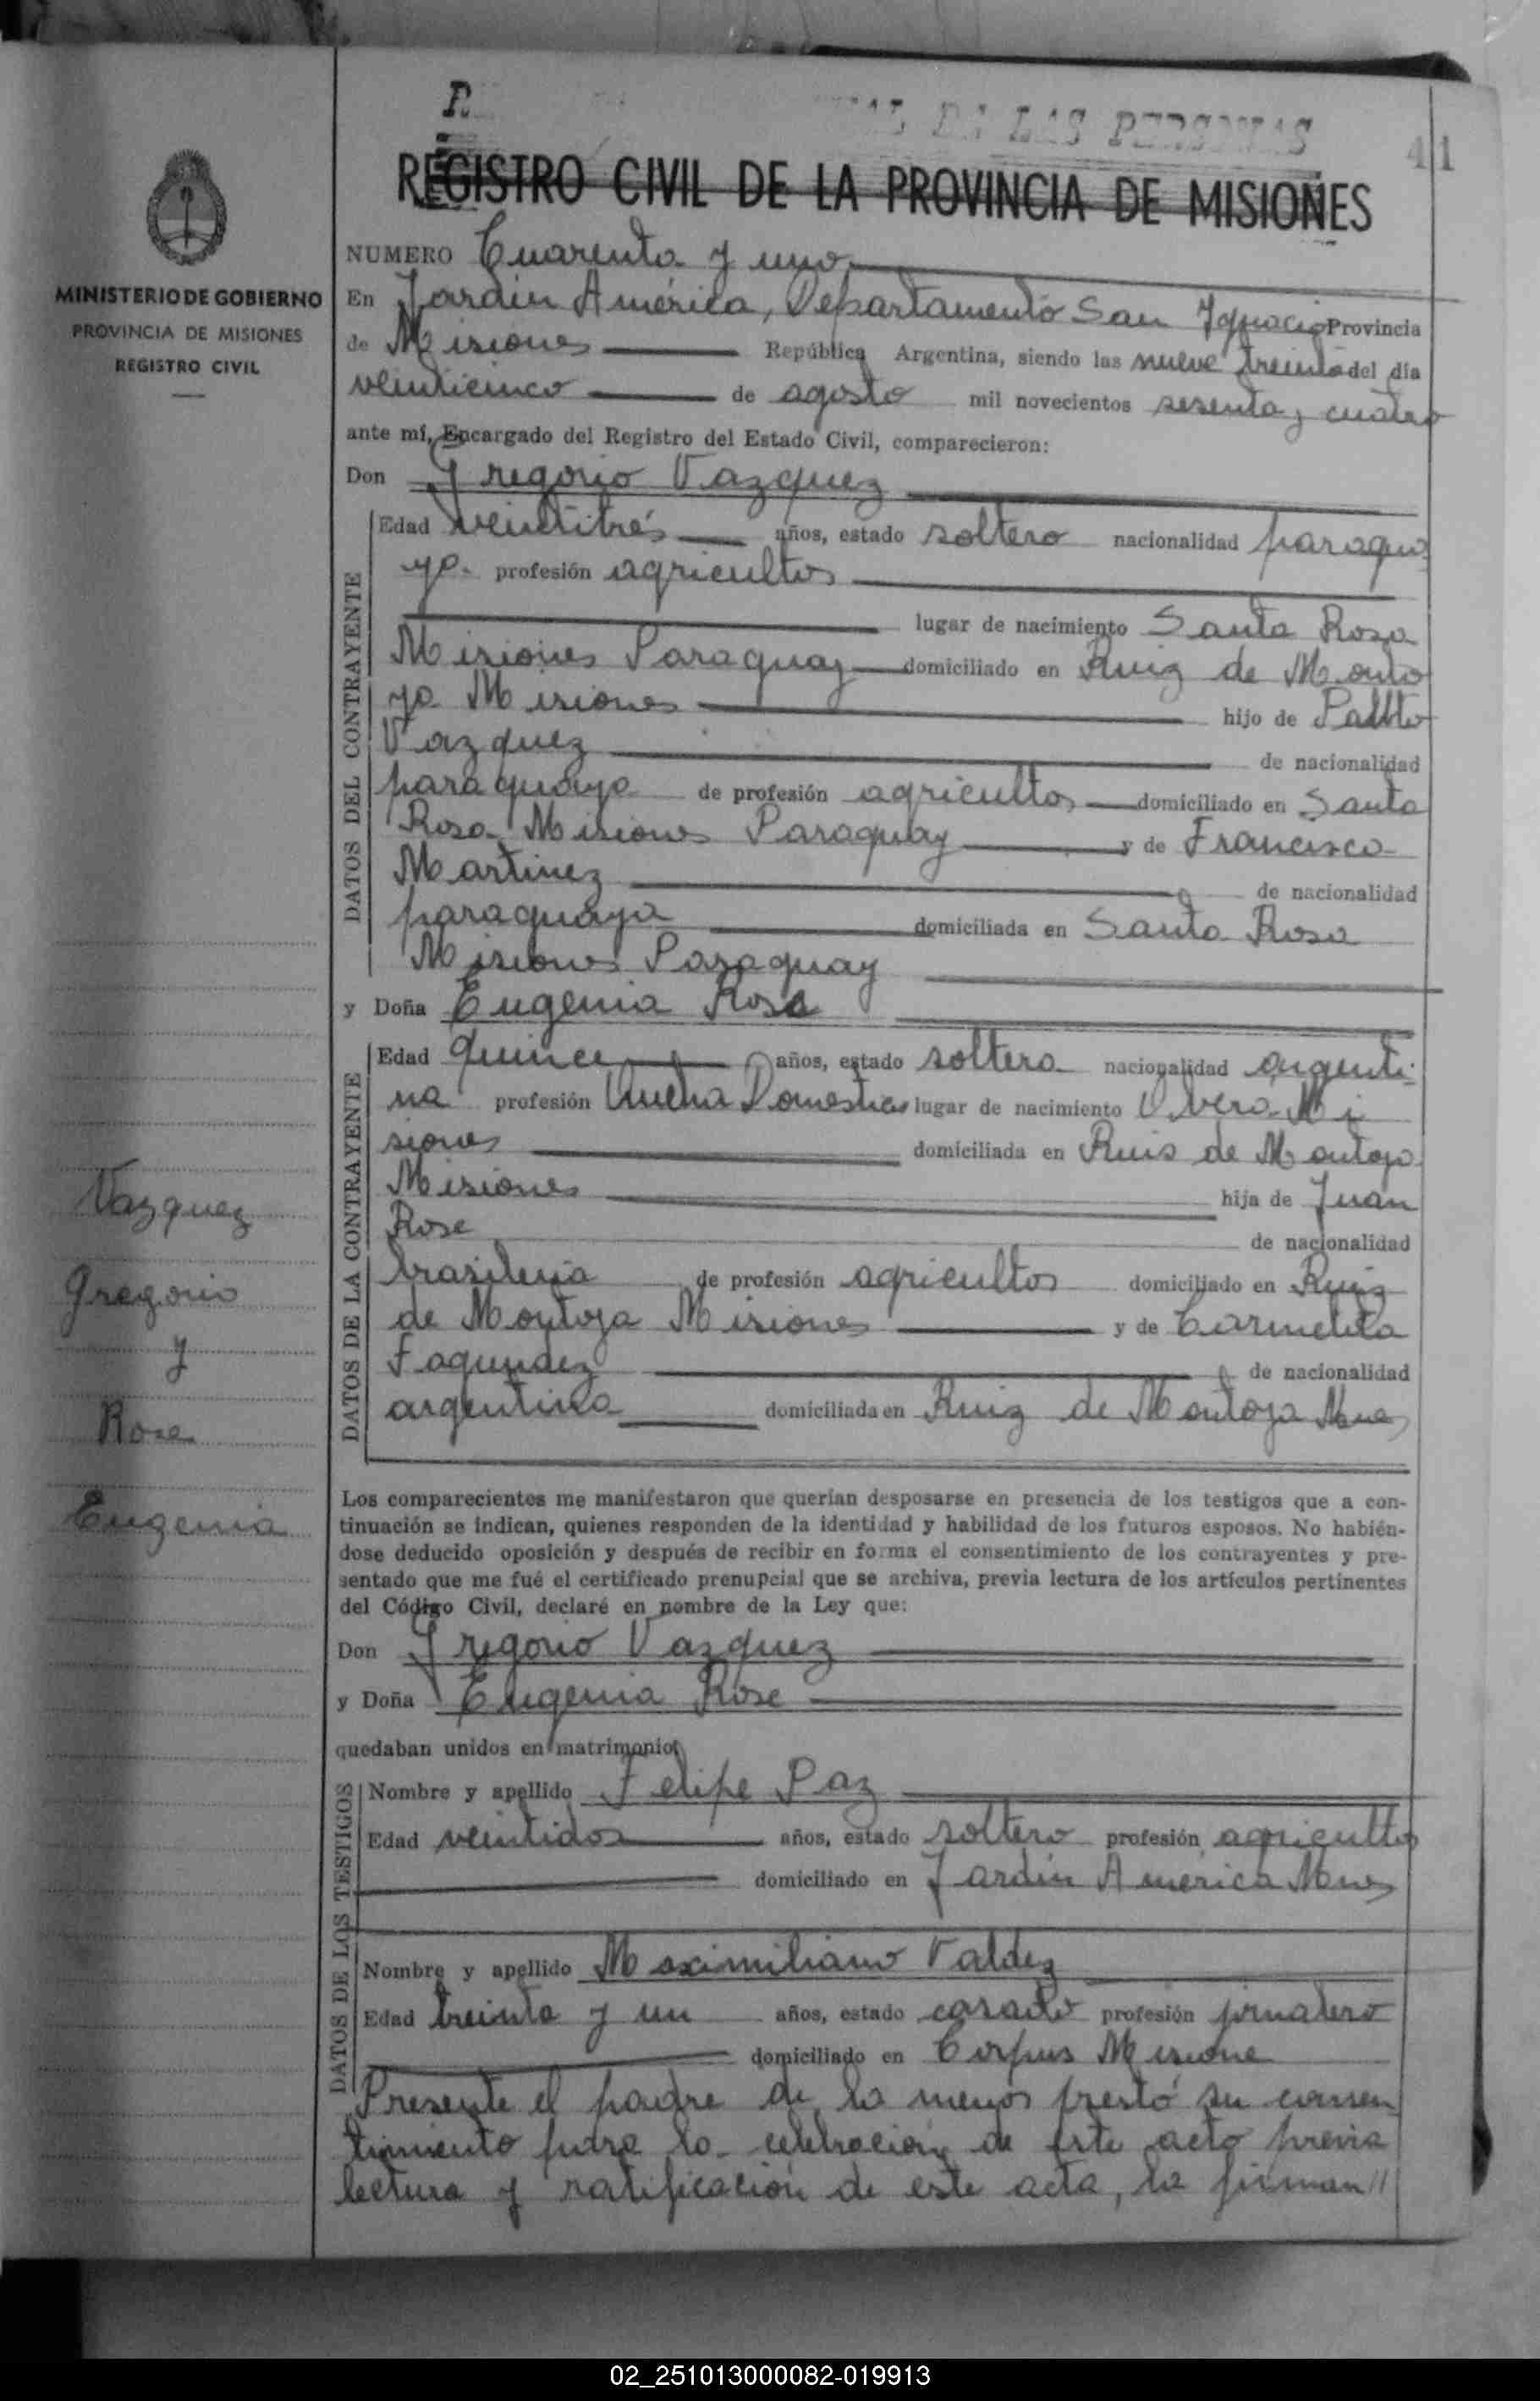 DE LAS PERSONAS
41
REGISTRO CIVIL DE LA PROVINCIA DE MISIONES
MINISTERIO DE GOBIERNO
PROVINCIA DE MISIONES
REGISTRO CIVIL
NUMERO Cuarenta y uno
En Jardin América, Departamento San Ignacio Provincia
de Misiones República Argentina, siendo las nueve treinta del día
veinticinco de agosto mil novecientos sesenta y cuatro
ante mí, Encargado del Registro del Estado Civil, comparecieron:
Don Gregorio Vazquez
DATOS DEL CONTRAYENTE
Edad veintitrés años, estado soltero nacionalidad paragua
ya profesión agricultor
lugar de nacimiento Santa Rosa
Misiones Paraguay domiciliado en Ruiz de Monto
ya Misiones hijo de Pablo
Vazquez de nacionalidad
paraguaya de profesión agricultor domiciliado en Santa
Rosa Misiones Paraguay y de Francisca
Martinez de nacionalidad
paraguaya domiciliada en Santa Rosa
Misiones Paraguay
y Doña Eugenia Rose
DATOS DE LA CONTRAYENTE
Edad quince años, estado soltera nacionalidad argenti
na profesión Domesticos lugar de nacimiento Overá Mi
siones domiciliada en Ruis de Montoya
Misiones hija de Juan
Rose de nacionalidad
brasileña de profesión agricultor domiciliado en Ruiz
de Montoya Misiones y de Carmelita
Fagundez de nacionalidad
argentina domiciliada en Ruiz de Montoya Mnes
Vazquez
Gregorio
y
Rose
Eugenia
Los comparecientes me manifestaron que querían desposarse en presencia de los testigos que a con-
tinuación se indican, quienes responden de la identidad y habilidad de los futuros esposos. No habién-
dose deducido oposición y después de recibir en forma el consentimiento de los contrayentes y pre-
sentado que me fué el certificado prenupcial que se archiva, previa lectura de los artículos pertinentes
del Código Civil, declaré en nombre de la Ley que:
Don Gregorio Vazquez
y Doña Eugenia Rose
quedaban unidos en matrimonio
DATOS DE LOS TESTIGOS
Nombre y apellido Felipe Paz
Edad veintidos años, estado soltero profesión agricultor
domiciliado en Jardin América Mnes
Nombre y apellido Maximiliano Valdez
Edad treinta y un años, estado casado profesión jornalero
domiciliado en Corpus Misione
Presente el padre de la menor prestó su consen
timiento para la celebración de este acto previa
lectura y ratificación de este acta, la firman//
02_251013000082-019913